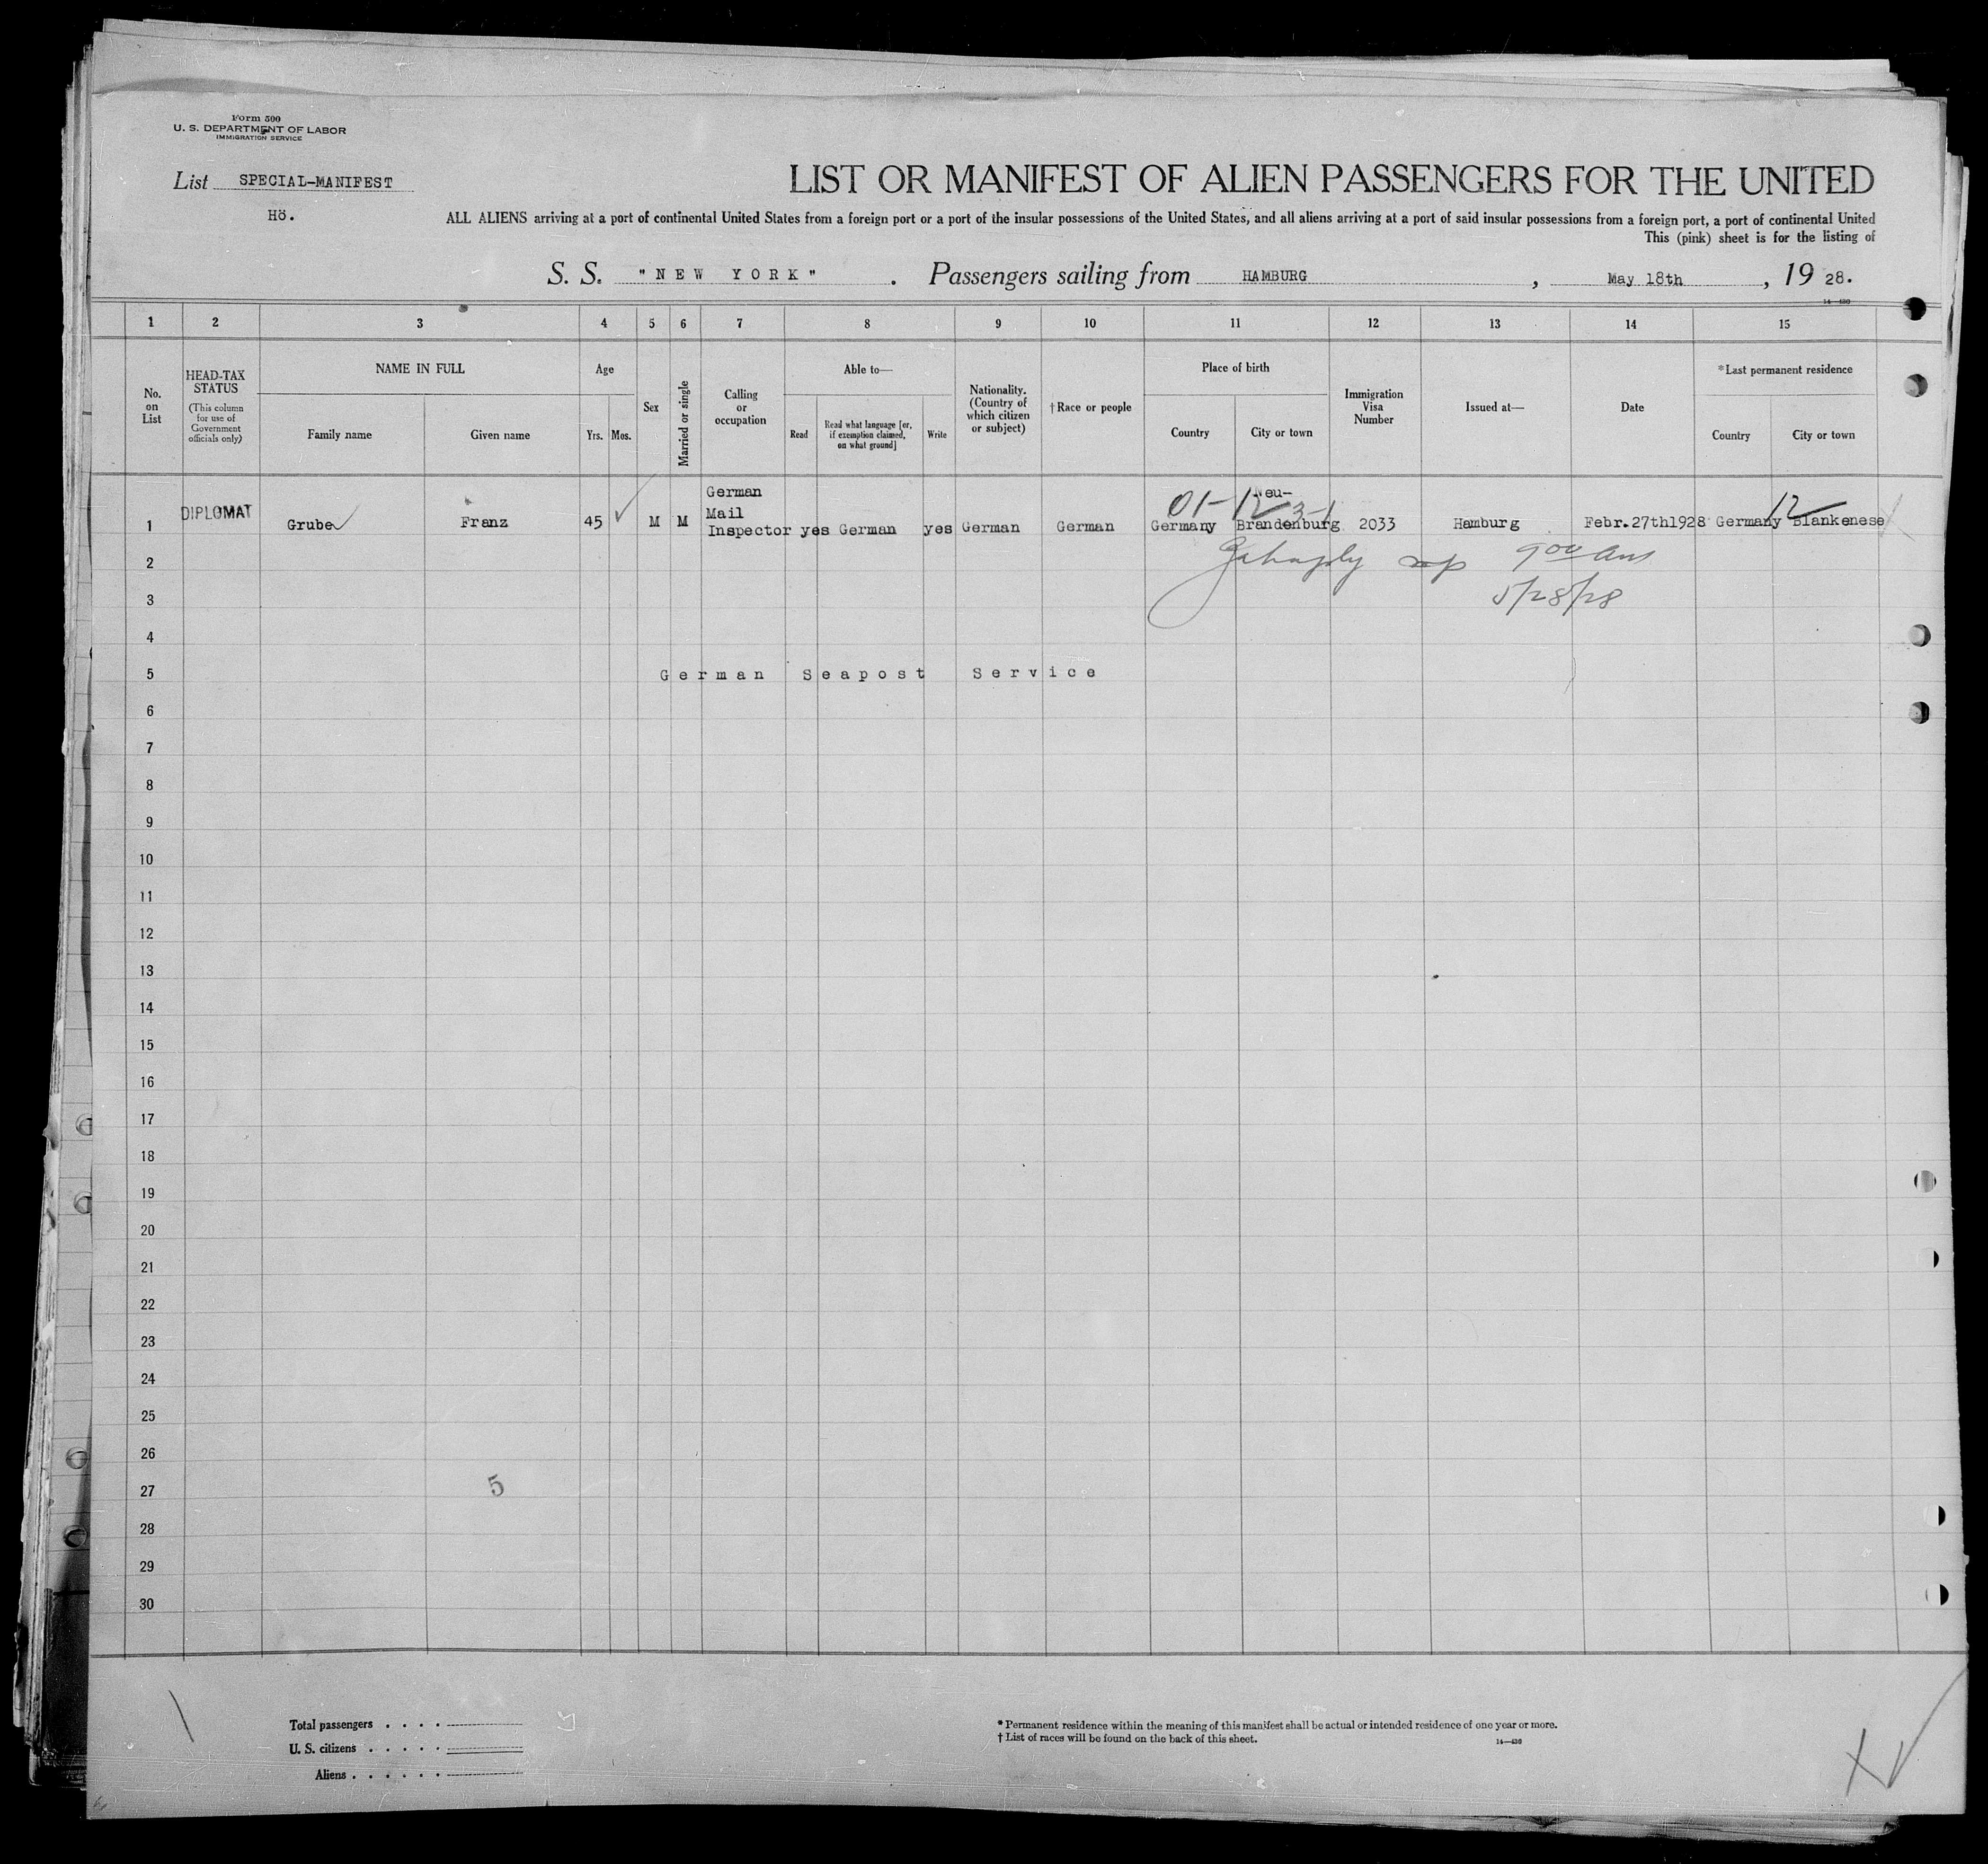 Form 500
U. S. DEPARTMENT OF LABOR
IMMIGRATION SERVICE
List SPECIAL-MANIFEST
Hö.
LIST OR MANIFEST OF ALIEN PASSENGERS FOR THE UNITED
ALL ALIENS arriving at a port of continental United States from a foreign port or a port of the insular possessions of the United States, and all aliens arriving at a port of said insular possessions from a foreign port, a port of continental United
This (pink) sheet is for the listing of
S. S. "NEW YORK" . Passengers sailing from HAMBURG , May 18th , 19 28.
14—430
1 2 3 4 5 6 7 8 9 10 11 12 13 14 15
No. on List
HEAD-TAX STATUS
(This column for use of Government officials only)
NAME IN FULL
Family name Given name
Age
Yrs. Mos.
Sex
Married or single
Calling or occupation
Able to—
Read
Read what language [or, if exemption claimed, on what ground]
Write
Nationality. (Country of which citizen or subject)
†Race or people
Place of birth
Country City or town
Immigration Visa Number
Issued at—
Date
*Last permanent residence
Country City or town
01-12 3-1 12
German Neu-
Mail
1 DIPLOMAT Grube Franz 45 M M Inspector yes German yes German German Germany Brandenburg 2033 Hamburg Febr.27th1928 Germany Blankenese
2 9 00 am
3 5/28/28
4
5 German Seapost Service
6
7
8
9
10
11
12
13
14
15
16
17
18
19
20
21
22
23
24
25
26
27 5
28
29
30
Total passengers . . . .
U. S. citizens . . . . .
Aliens . . . . . .
* Permanent residence within the meaning of this manifest shall be actual or intended residence of one year or more.
† List of races will be found on the back of this sheet.
14—430